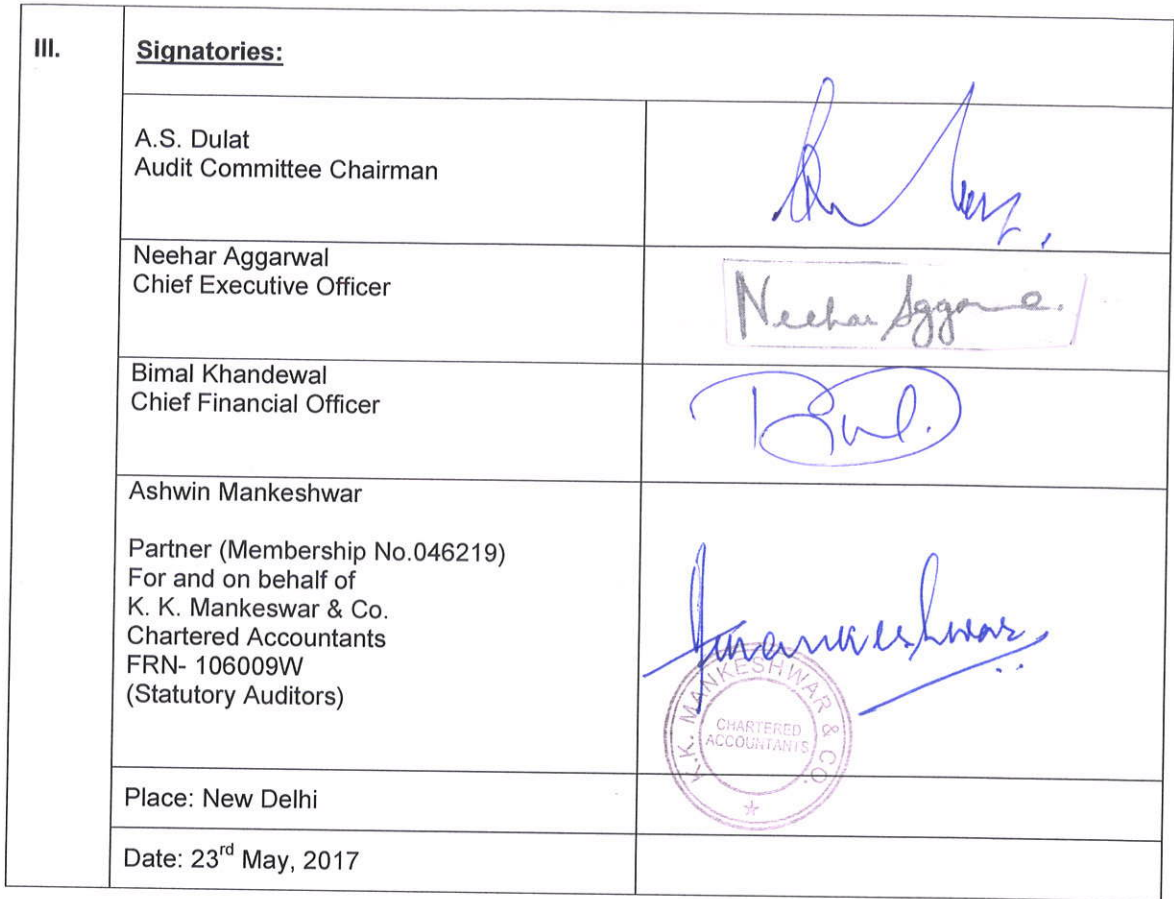 III.
Signatories:
A.S. Dulat
Audit Committee Chairman
Neehar Aggarwal
Chief Executive Officer
Neehar Aggarwal.
Bimal Khandewal
Chief Financial Officer
Ashwin Mankeshwar
Partner (Membership No.046219)
For and on behalf of
K. K. Mankeswar & Co.
Chartered Accountants
FRN- 106009W
(Statutory Auditors)
Amankeshwar
K.K. MANKESHWAR & CO.
CHARTERED
ACCOUNTANTS
Place: New Delhi
Date: 23rd May, 2017